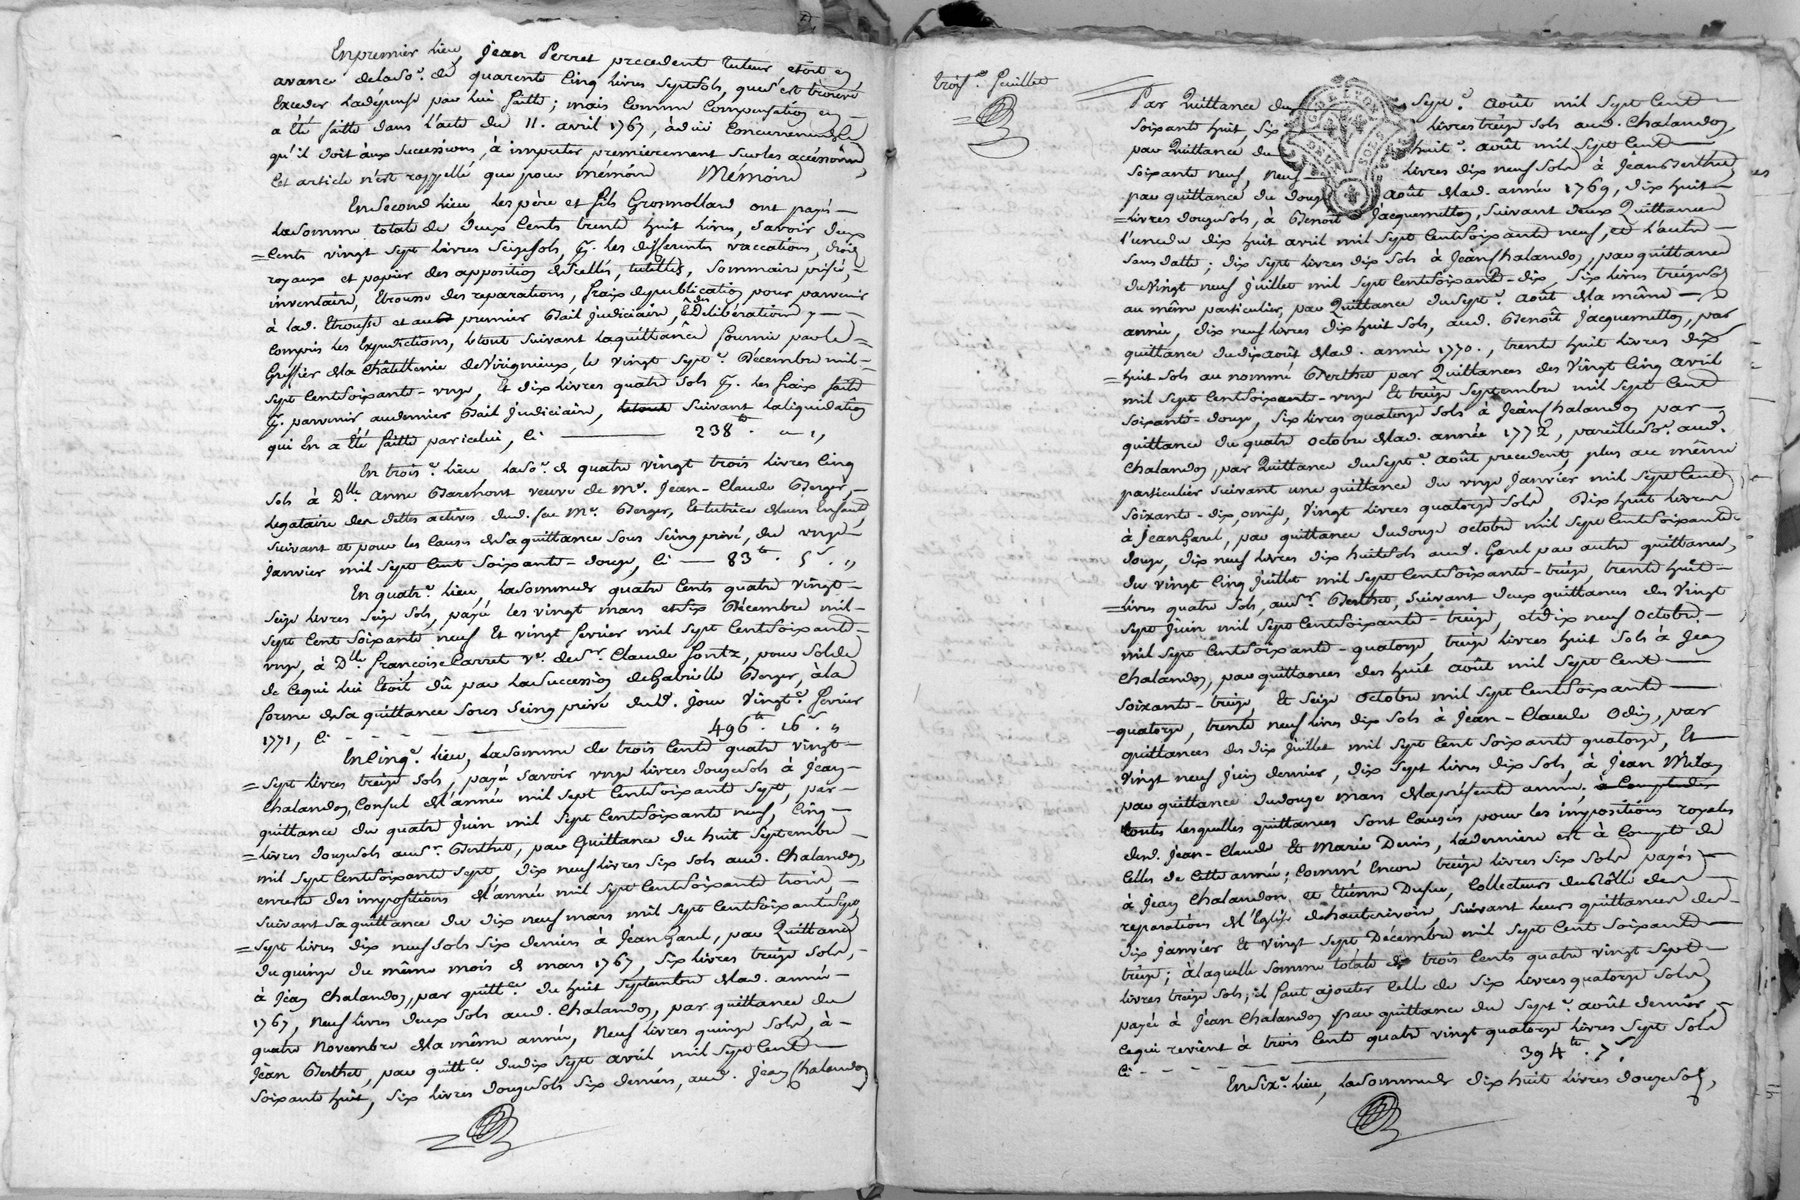 En premier lieu Jean Perret precedent tuteur etoit en
avance de la so.e de quarente cinq livres sept sols, que s'est trouvé
exceder la dépense par lui faitte; mais comme compensation en
a été faitte dans l'acte du 11. avril 1767, à düe concurrence de ce
qu'il doit aux successions, à imputer premierement sur les accéssoires
cet article n'est rappellé que pour mémoire Mémoire
En second lieu les père et fils Grosmollard ont payé
la somme totale de deux cents trente huit livres, savoir deux
=cents vingt sept livres seize sols, p.r les differents vaccations, droits
royaux et papier des apposition de scellés, tutelles, sommaire prisée,
inventaire, etrousse des reparations, fraix de publication pour parvenir
à lad. etrousse et au premier bail judiciaire, et deliberation y
compris les expeditions, le tout suivant la quittance fournie par le
Greffier de la châtellenie de Virignieux, le vingt sept.e décembre mil
sept cent soixante-onze, et dix livres quatre sols p.r les fraix faits
p.r parvenir au dernier bail judiciaire, suivant la liquidation
qui en a été faitte par icelui, ci 238 lt. " "
En trois.e lieu la so.e de quatre vingt trois livres cinq
sols à D.lle anne Baremont veuve de M.e Jean-Claude Berger,
legataire des dettes actives dud. feu M.e Berger, et tutrice de leurs enfants
suivant et pour les causes de sa quittance sous seing privé, du onze
janvier mil sept cent soixante-douze, ci 83 lt. 5 s. "
En quatr.e lieu, la somme de quatre cents quatre vingt
seize livres seize sols, payée les vingt mars et six décembre mil
sept cent soixante neuf et vingt fevrier mil sept cent soixante
onze, à D.lle françoise Carret v.e de s.r Claude fontz, pour solde
de ce qui lui etoit dû par la succession de Gabrielle Berger, à la
forme de sa quittance sous seing privé dud. jour vingt.e fevrier
1771, ci 496 lt. 16 s. "
En cinq.e lieu, la somme de trois cents quatre vingt
=sept livres treize sols, payée savoir onze livres douze sols à Jean
Chalandon, Consul de l'année mil sept cent soixante sept, par
quittance du quatre juin mil sept cent soixante neuf, cinq
=livres douze sols au s.r Berthet, par quittance du huit septembre
mil sept cent soixante sept, dix neuf livres six sols aud. Chalandon,
en reste des impositions de l'année mil sept cent soixante trois,
suivant sa quittance du dix neuf mars mil sept cent soixante sept
=sept livres dix neuf sols six deniers à Jean Garel, par quittance
du quinze du même mois de mars 1767, six livres treize sols,
à Jean Chalandon, par quitt.ce du huit septembre de lad. année
1767, neuf livres deux sols aud. Chalandon, par quittance du
quatre novembre de la même année, neuf livres quinze sols, à
Jean Berthet, par quitt.ce du dix sept avril mil sept cent
soixante huit, six livres douze sols six deniers, aud. Jean Chalandon
trois.e feuillet
Par quittance du sept.e août mil sept cent
soixante huit, six livres treize sols aud. Chalandon,
par quittance du huit.e août mil sept cent
soixante neuf, neuf livres dix neuf sols à Jean Berthet
par quittance du douze août de lad. année 1769, dix huit
=livres douze sols, à Benoît Jacquemetton, suivant deux quittances
l'une du dix huit avril mil sept cent soixante neuf, et l'autre
sans datte; dix sept livres dix sols à Jean Chalandon, par quittance
du vingt neuf juillet mil sept cent soixante-dix, six livres treize sols
au même particulier, par quittance du sept.e août de la même
année, dix neuf livres dix huit sols, aud. Benoît Jacquemetton, par
quittance du dix août de lad. année 1770., trente huit livres dix
=huit sols au nommé Berthet par quittances des vingt cinq avril
mil sept cent soixante-onze et treize septembre mil sept cent
soixante-douze, six livres quatorze sols à Jean Chalandon par
quittance du quatre octobre de lad. année 1772, pareille so.e aud.
Chalandon, par quittance du sept.e août precedent, plus au même
particulier suivant une quittance du onze janvier mil sept cent
soixante-dix, omise, vingt livres quatorze sols, dix huit livres
à Jean Garel, par quittance du douze octobre mil sept cent soixante
douze, dix neuf livres dix huit sols aud. Garel par autre quittance,
du vingt cinq juillet mil sept cent soixante-treize, trente huit
=livres quatre sols, au s.r Berthet, suivant deux quittances des vingt
sept juin mil sept cent soixante-treize, et dix neuf octobre
mil sept cent soixante-quatorze, treize livres huit sols à Jean
Chalandon, par quittances des huit août mil sept cent
soixante-treize, et seize octobre mil sept cent soixante
quatorze, trente neuf livres dix sols à Jean-Claude Odin, par
quittances des dix juillet mil sept cent soixante quatorze, et
vingt neuf juin dernier, dix sept livres dix sols, à Jean Milan
par quittance du douze mars de la présente année.
toutes lesquelles quittances sont causées pour les impositions royales
desd. Jean-Claude et Marie Denis, la derniere est à compte de
celles de cette année; comme encore treize livres six sols payés
à Jean Chalandon et Etienne Dufue, Collecteurs du Rôlle des
reparations de l'Eglise de hauterivoire, suivant leurs quittances des
dix janvier et vingt sept décembre mil sept cent soixante
treize; à laquelle somme totale de trois cents quatre vingt sept
livres treize sols, il faut ajouter celle de six livres quatorze sols
payée à Jean Chalandon par quittance du sept.e août dernier,
ce qui revient à trois cents quatre vingt quatorze livres sept sols
ci 394 lt. 7 s.
En six.e lieu, la somme de dix huit livres douze sols,